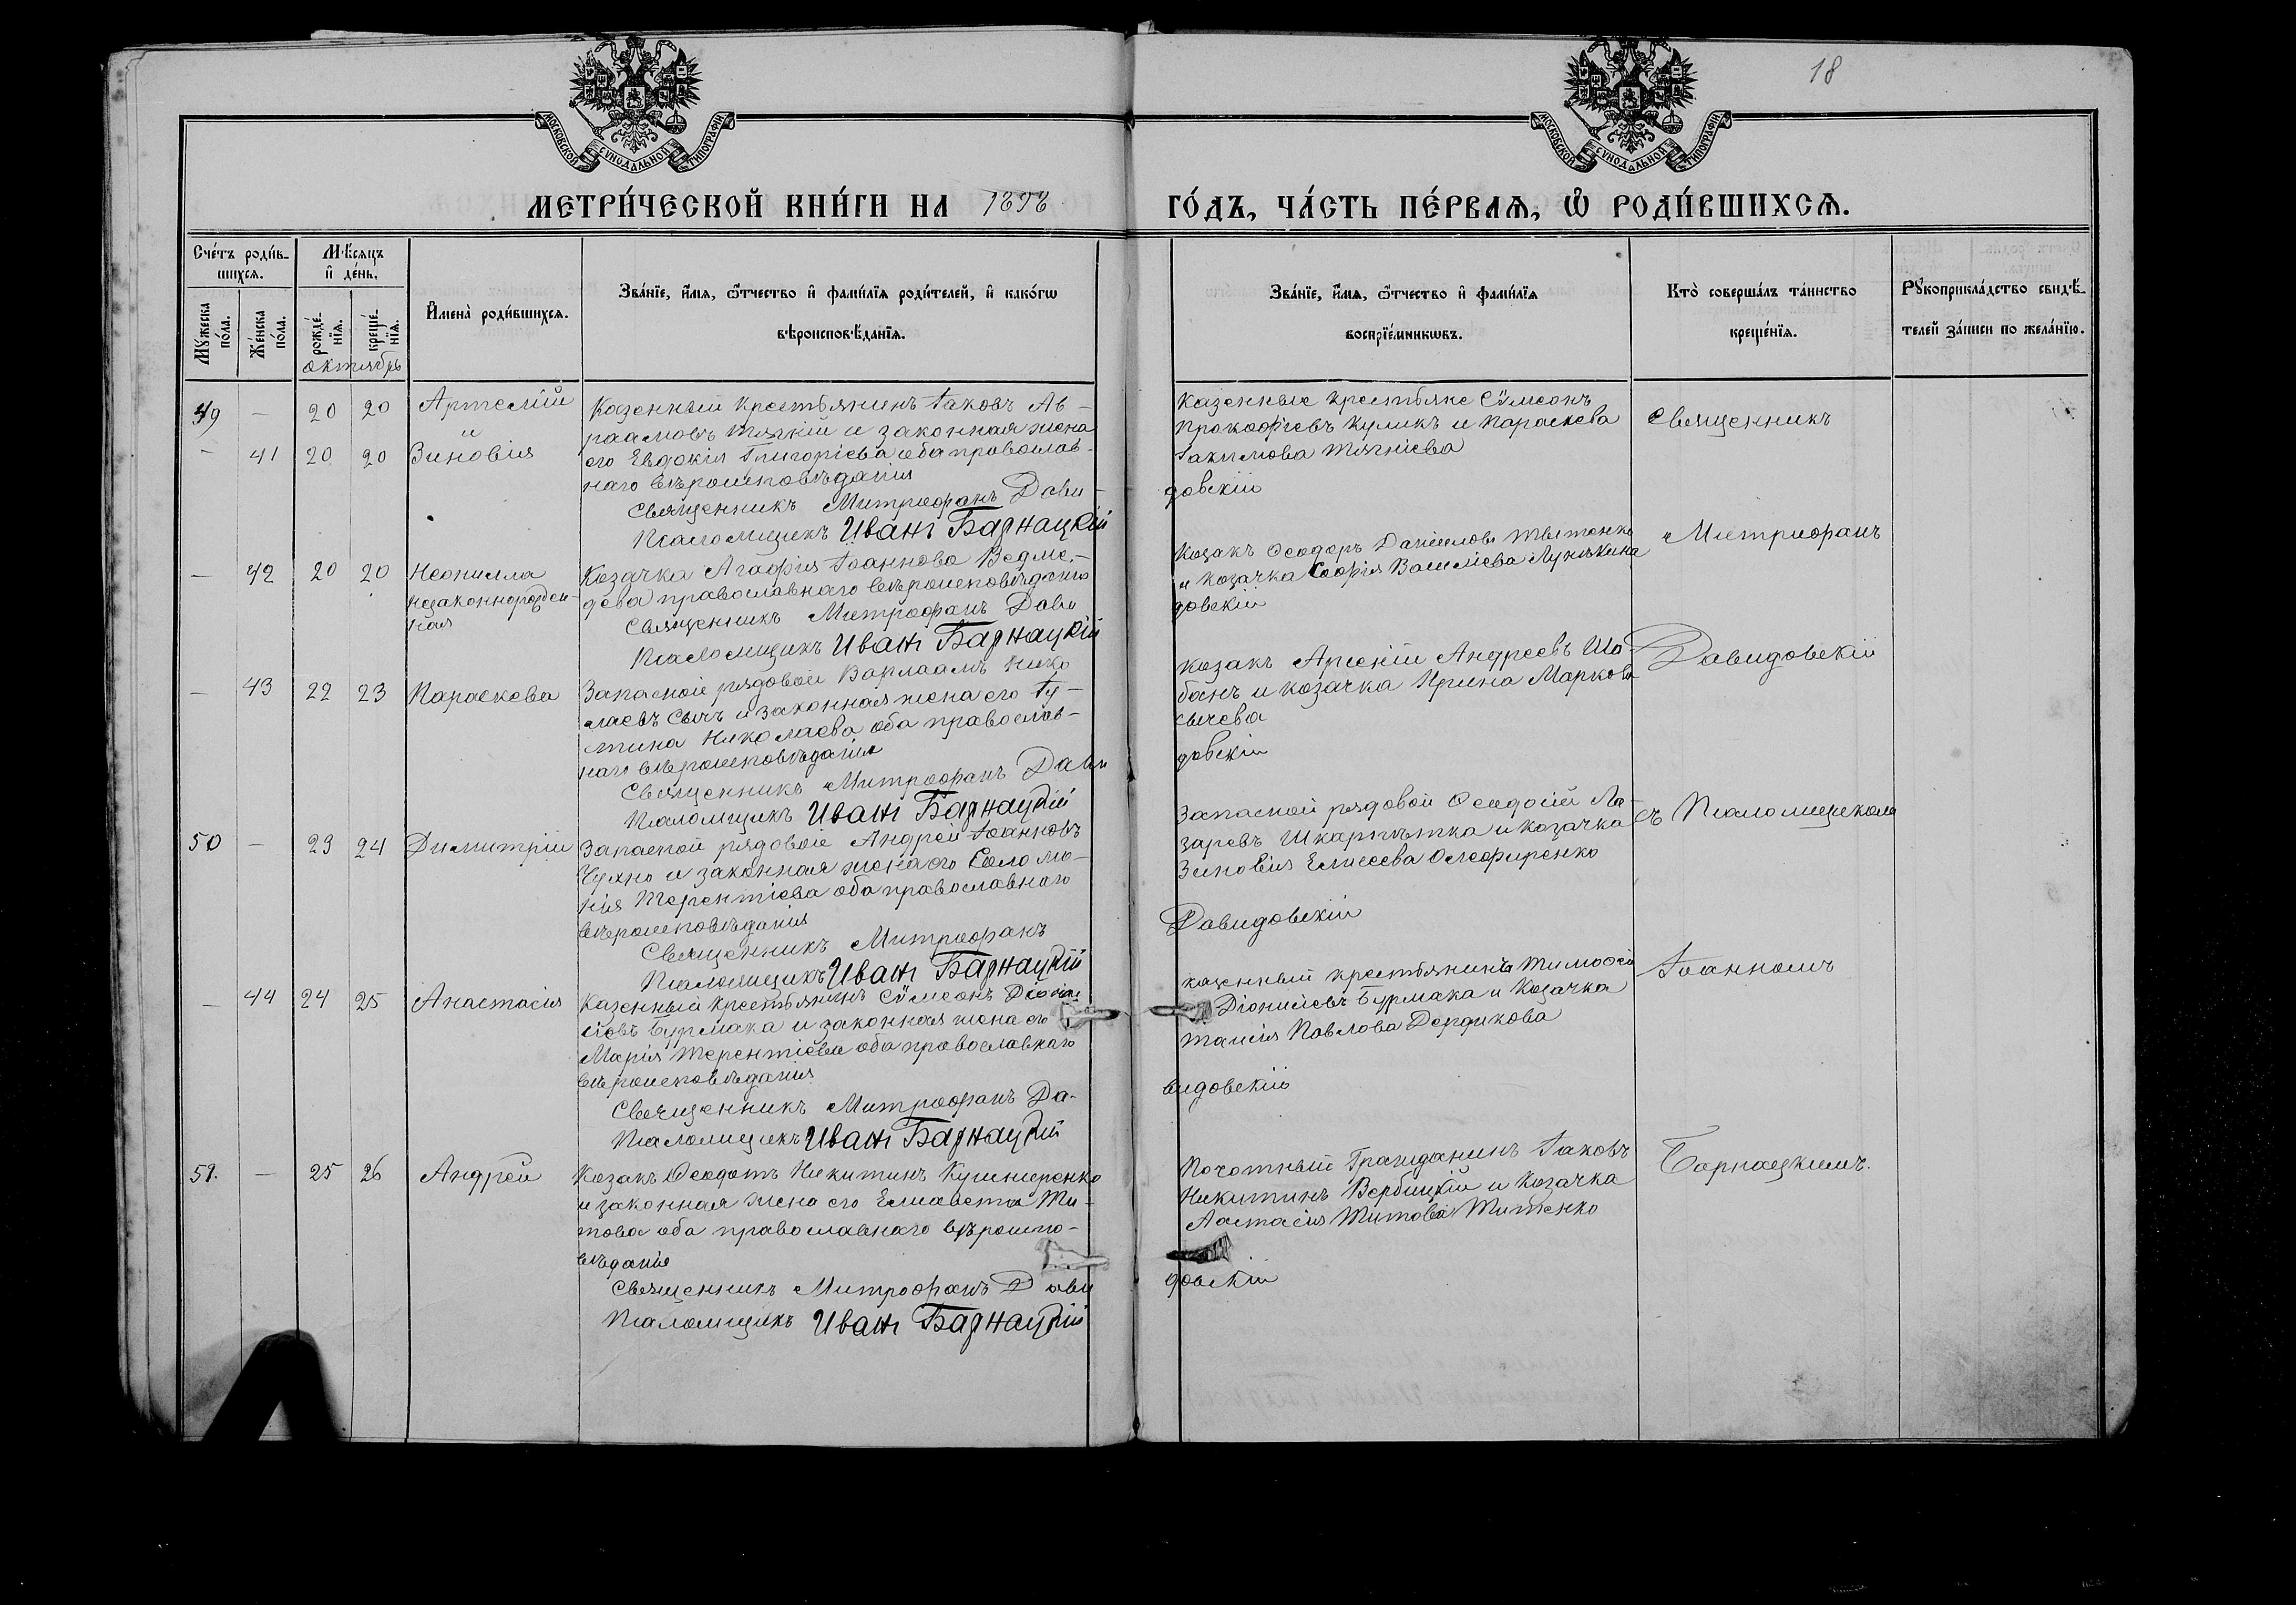 18
МОСКОВСКОЙ СѴНОДАЛЬНОЙ ТИПОГРАФІИ
МОСКОВСКОЙ СѴНОДАЛЬНОЙ ТИПОГРАФІИ
МЕТРИ́ЧЕСКОЙ КНИ́ГИ НА 1898 ГО́ДЪ, ЧА́СТЬ ПЕ́РВАѦ, Ѡ РОДИ́ВШИХСѦ.
Сче́тъ роди́в-
шихся.
Мѣ́сяцъ
и де́нь.
Мꙋ́жеска
по́ла.
Же́нска
по́ла.
рожде́-
нїя.
креще́-
нїя.
И҆мена̀ роди́вшихся.
Зва́нїе, и҆́мя, ѻ҆́тчество и҆ фами́лїя роди́телей, и҆ како́гѡ
вѣроисповѣ́данїя.
Зва́нїе, и҆́мя, ѻ҆́тчество и҆ фами́лїя
воспрїе́мникѡвъ.
Кто̀ соверша́лъ та́инство
креще́нїя.
Рꙋкоприкла́дство свидѣ́-
телей за́писи по жела́нїю.
октябрь
49 — 20 20 Артемій
Казенный крестьянинъ Іаковъ Ав-
раамовъ Тягній и законная жена
и
— 41 20 20 Зиновія
его Евдокія Григоріева оба православ-
наго вѣроисповѣданія
Священникъ Митрофанъ Дави-
довскій
Псаломщикъ Иванъ Барнацкій
Казенные крестьяне Сѵмеонъ
Прокофіевъ Куликъ и Параскева
Іакимова Тягніева
Священникъ
— 42 20 20 Неонилла
незаконнорожден-
ная
Козачка Агафія Іоаннова Ведме-
дева православнаго вѣроисповѣданія
Священникъ Митрофанъ Дави
довскій
Псаломщикъ Иванъ Барнацкій
Козакъ Ѳеодоръ Даніиловъ
и козачка Софія Василіева
Митрофанъ
— 43 22 23 Параскева
Запасной рядовой Варлаамъ Нико
лаевъ Сычъ и законная жена его Іу-
стина Николаева оба православ-
наго вѣроисповѣданія
Священникъ Митрофанъ Дави
довскій
Псаломщикъ Иванъ Барнацкій
Козакъ Арсеній Андреевъ Ша-
банъ и козачка Ирина Маркова
Сычева
Давидовскій
50 — 23 24 Димитрій
Запасной рядовой Андрей Іоанновъ
Чухно и законная жена его Соломо-
нія Терентіева оба православнаго
вѣроисповѣданія
Священникъ Митрофанъ
Давидовскій
Псаломщикъ Иванъ Барнацкій
Запасной рядовой Ѳеодосій Ла-
заревъ Шкарпетка и козачка
Зиновія Елисеева Олефиренко
съ Псаломщикомъ
— 44 24 25 Анастасія
Казенный крестьянинъ Сѵмеонъ Діони-
сіевъ Бурмака и законная жена его
Марія Терентіева оба православнаго
вѣроисповѣданія
Священникъ Митрофанъ Да-
видовскій
Псаломщикъ Иванъ Барнацкій
казенный крестьянинъ Тимоѳей
Діонисіевъ Бурмака и Козачка
Таисія Павлова Дердикова
Іоанномъ
51. — 25 26 Андрей
Козакъ Ѳеодотъ Никитинъ Кушниренко
и законная жена его Елисавета Ти-
това оба православнаго вѣроиспо-
вѣданія
Священникъ Митрофанъ Дави
довскій
Псаломщикъ Иванъ Барнацкій
Почотный Гражданинъ Іаковъ
Никитинъ Вербицкій и Козачка
Анастасія Титова Титенко
Барнацкимъ.